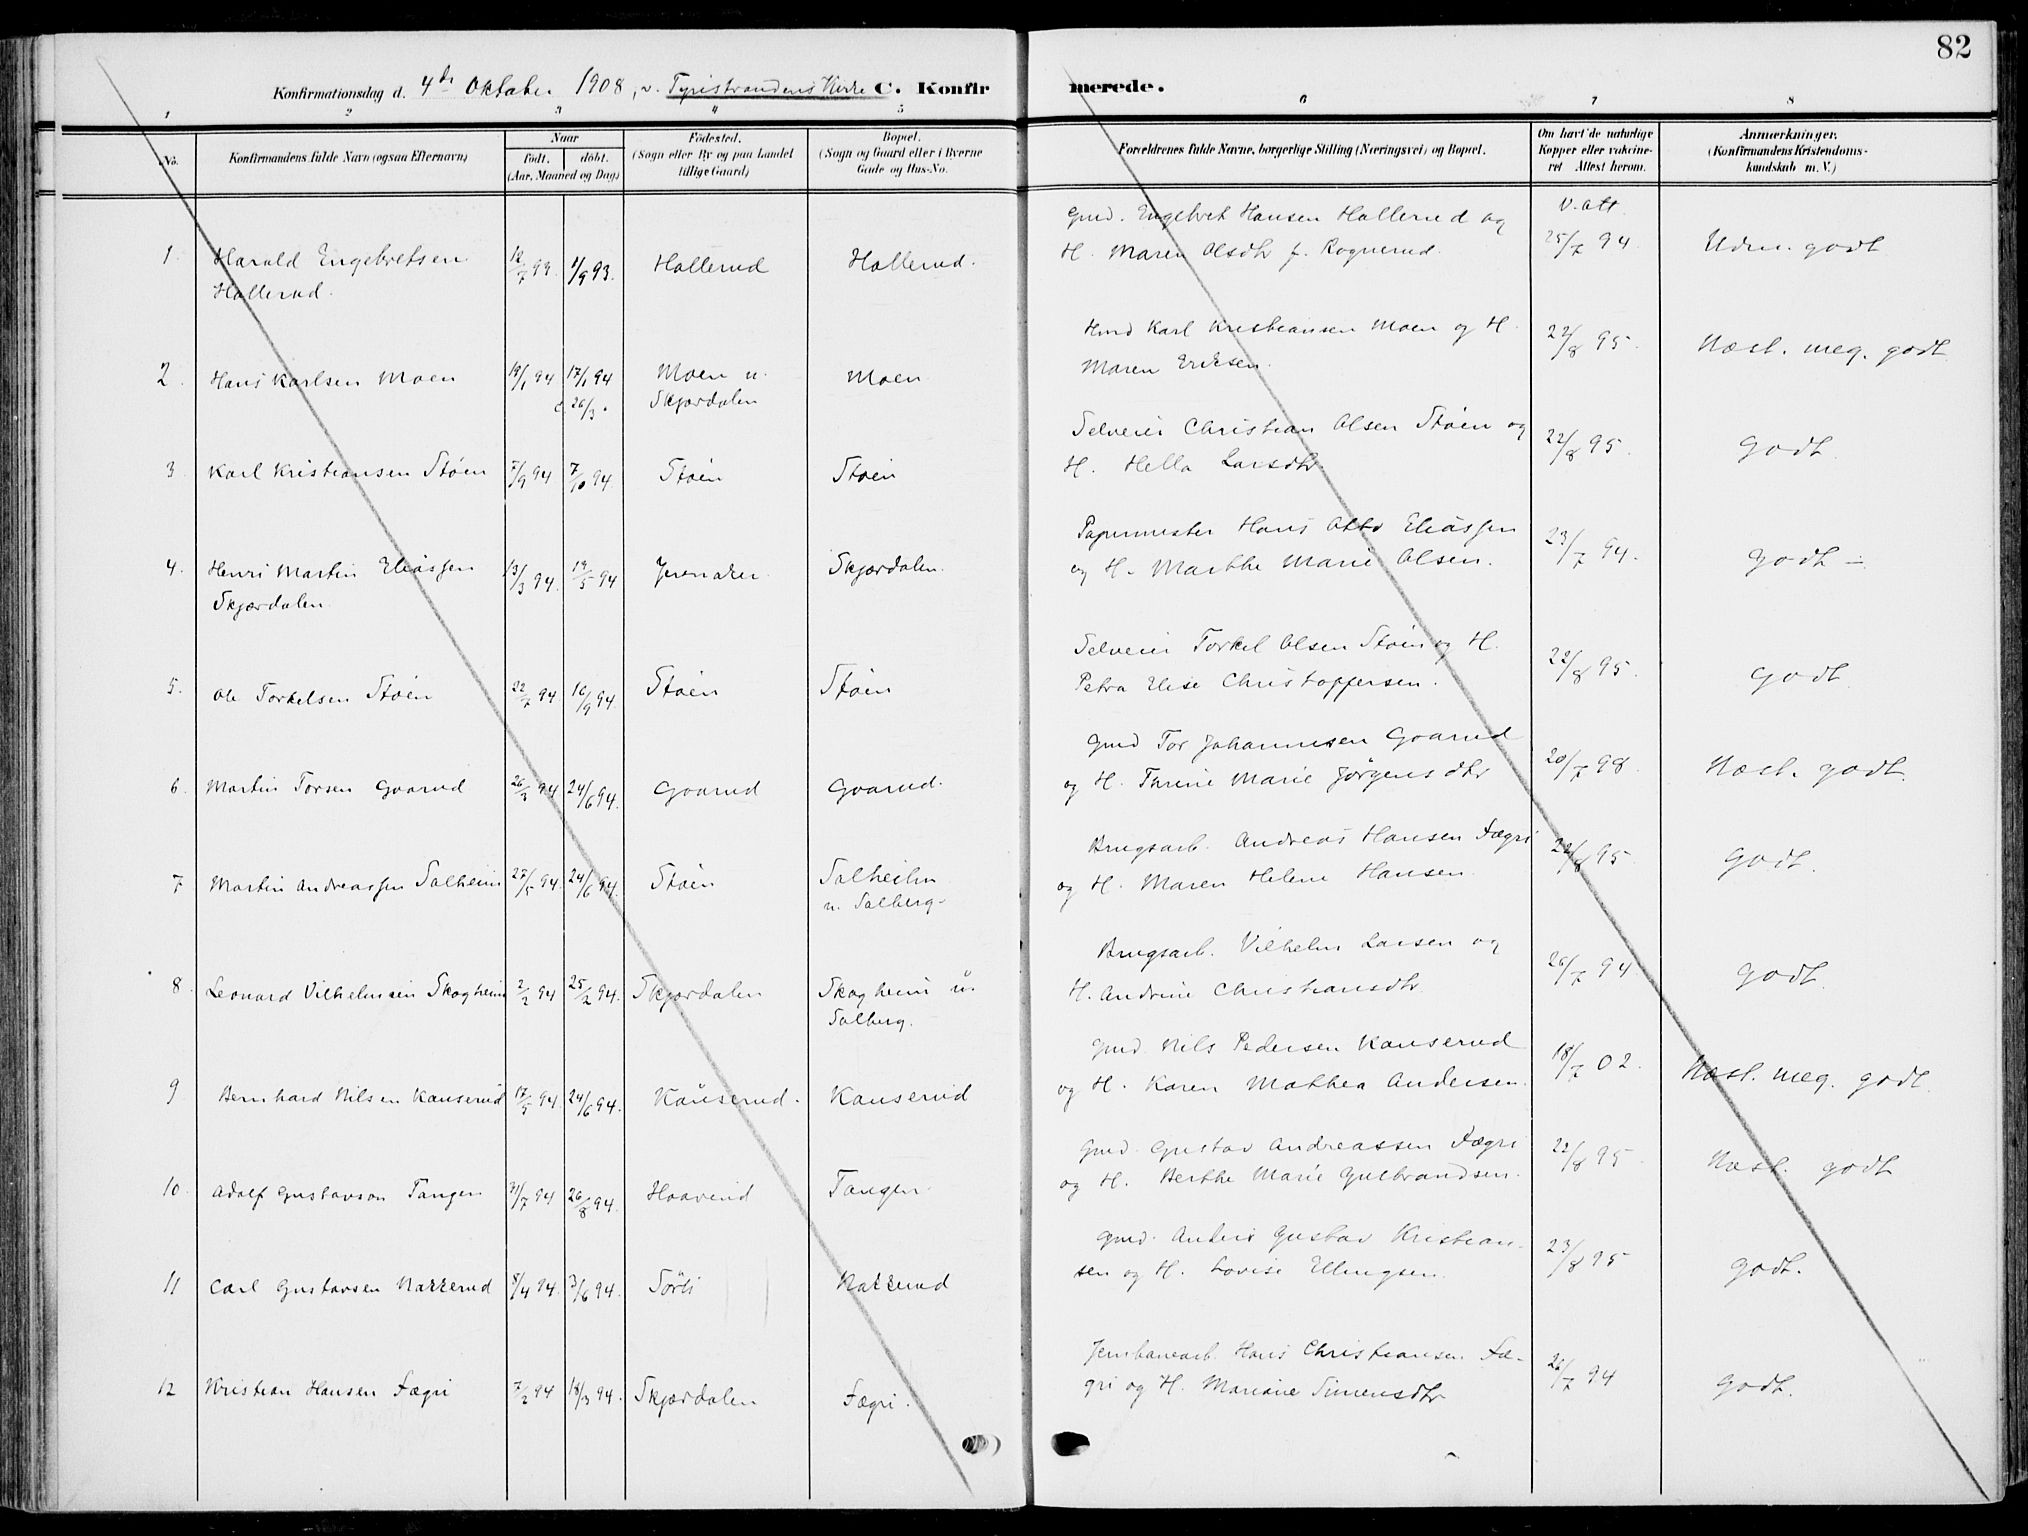 82
Konfirmationsdag d. 4de Oktober 1908, v. Tyristrandens Kirke C. Konfirmerede.
1 2 3 4 5 6 7 8
No.
Konfirmandens fulde Navn (ogsaa Efternavn)
Naar
födt. döbt.
(Aar, Maaned og Dag)
Födested.
(Sogn eller By og paa Landet
tillige Gaard)
Bopæl.
(Sogn og Gaard eller i Byerne
Gade og Hus-No.
Forældrenes fulde Navne, borgerlige Stilling (Næringsvei) og Bopæl.
Om havt de naturlige
Kopper eller vakcine-
ret Attest herom.
Anmærkninger.
(Konfirmandens Kristendoms-
kundskab m. V.)
Gmd. Engebret Hansen Hollerud og
V. att.
1. Harald Engebretsen 12/7 93. 1/9 93. Hollerud Hollerud. H. Maren Olsdtr f. Rognerud. 25/7 94. Udm. godt
Hollerud.
Hmd Karl Kristiansen Moen og H.
2. Hans Karlsen Moen 19/1 94 17/1 94 Moen u. Moen. Maren Eriksen. 22/8 95. Næst. meg. godt
26/3. Skjærdalen
Selveier Christian Olsen Støen og
3 Karl Kristiansen Støen 7/9 94 7/10 94. Støen Støen H. Hella Larsdtr. 22/8 95. godt.
Papirmester Hans Otto Eliassen
4. Henri Martin Eliassen 13/3 94. 19/5 94 Jevnaker. Skjærdalen. og H. Marthe Marie Olsen. 23/7 94. godt –
Skjærdalen.
Selveier Torkel Olsen Støen og H.
5. Ole Torkelsen Støen 22/7 94 16/9 94. Støen Støen Petra Elise Christoffersen. 22/8 95. godt
Gmd Tor Johannesen Gaarud
6. Martin Torsen Gaarud 26/3 94 24/6 94. Gaarud Gaarud. og H. Thrine Marie Jørgensdtr 20/7 98. Næst. godt.
Brugsarb. Andreas Hansen Fægri
7 Martin Andreassen Solheim 27/5 94. 24/6 94. Støen Solheim og H. Maren Helene Hansen. 22/8 95. godt.
u. Solberg-
Brugsarb. Vilhelm Larsen og
8. Leonard Vilhelmsen Skogheim 2/2 94 25/2 94. Skjærdalen Skogheim u. H. Andrine Christiansdtr 26/7 94 godt.
Solberg.
Gmd. Nils Pedersen Kanserud
9 Bernhard Nilsen Kanserud 17/5 94. 24/6 94. Kanserud. Kanserud og H. Karen Mathea Andersen. 18/7 02. Næst. meg. godt
Gmd. Gustav Andreassen Fægri
10. Adolf Gustavson Tangen 31/7 94 26/8 94. Haaverud Tangen. og H. Berthe Marie Gulbrandsen. 22/8 95. Næst. godt
Gmd. Anders Gustav Kristian-
11 Carl Gustavsen Nakkerud 8/4 94. 3/6 94. Sørli Nakkerud sen og H. Lovise Ellingsen. 23/8 95 godt.
Jernbanearb. Hans Christiansen Fæ-
12 Kristian Hansen Fægri 7/2 94 18/3 94. Skjærdalen Fægri. gri og H. Mariane Simensdtr 26/7 94 godt.